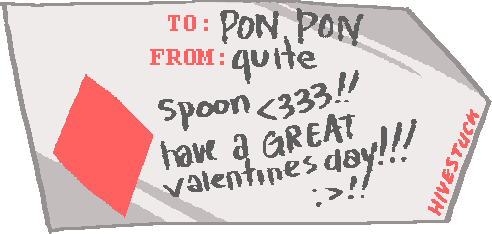 TO: PON PON
FROM: quite
spoon <333!!
have a GREAT
valentines day!!!
:>!!
HIVESTUCK